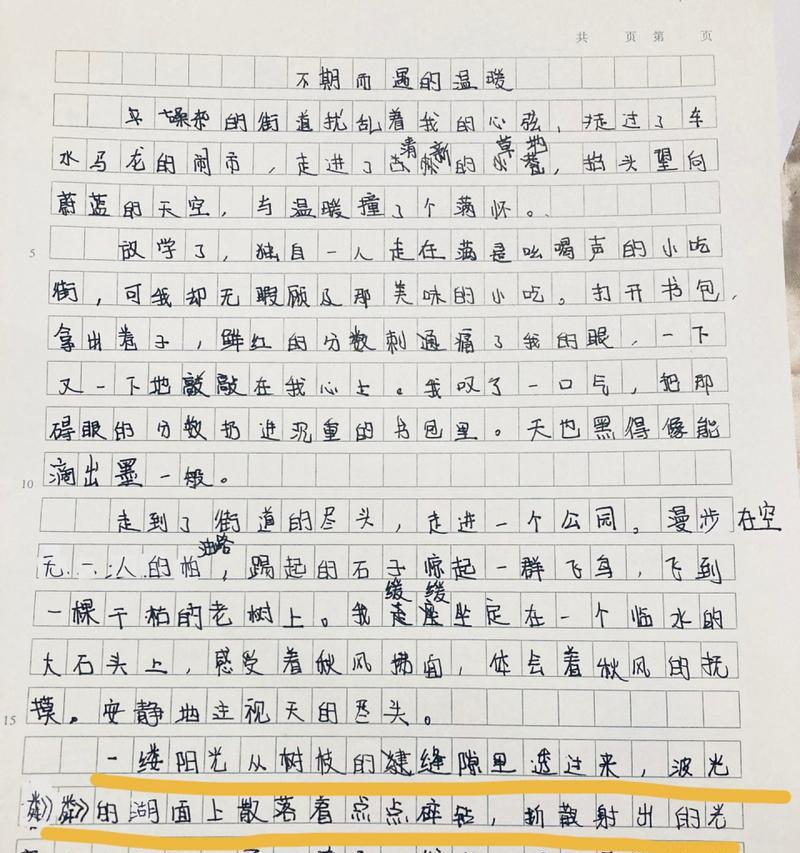 共 页 第 页
不期而遇的温暖
嘈杂的街道扰乱着我的心弦，走过了车
水马龙的闹市，走进了清新的草地，抬头望向
蔚蓝的天空，与温暖撞了个满怀。
5 放学了，独自一人走在满是吆喝声的小吃
街，可我却无暇顾及那美味的小吃。打开书包，
拿出卷子，鲜红的分数刺通痛了我的眼，一下
又一下地敲敲在我心上。我叹了一口气，把那
碍眼的分数扔进沉重的书包里。天也黑得像能
10 滴出墨一般。
走到了街道的尽头，走进一个公园。漫步在空
无一人的柏油路，踢起的石子惊起一群飞鸟，飞到
一棵干枯的老树上。我缓缓坐定在一个临水的
大石头上，感受着秋风拂面，体会着秋风的抚
15 摸。安静地注视天的尽头。
一缕阳光从树枝的缝隙里透过来，波光
粼粼的湖面上散落着点点碎钻，折散射出的光